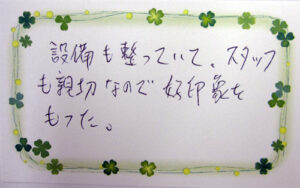 設備も整っていて、スタッフ
も親切なので好印象を
もった。